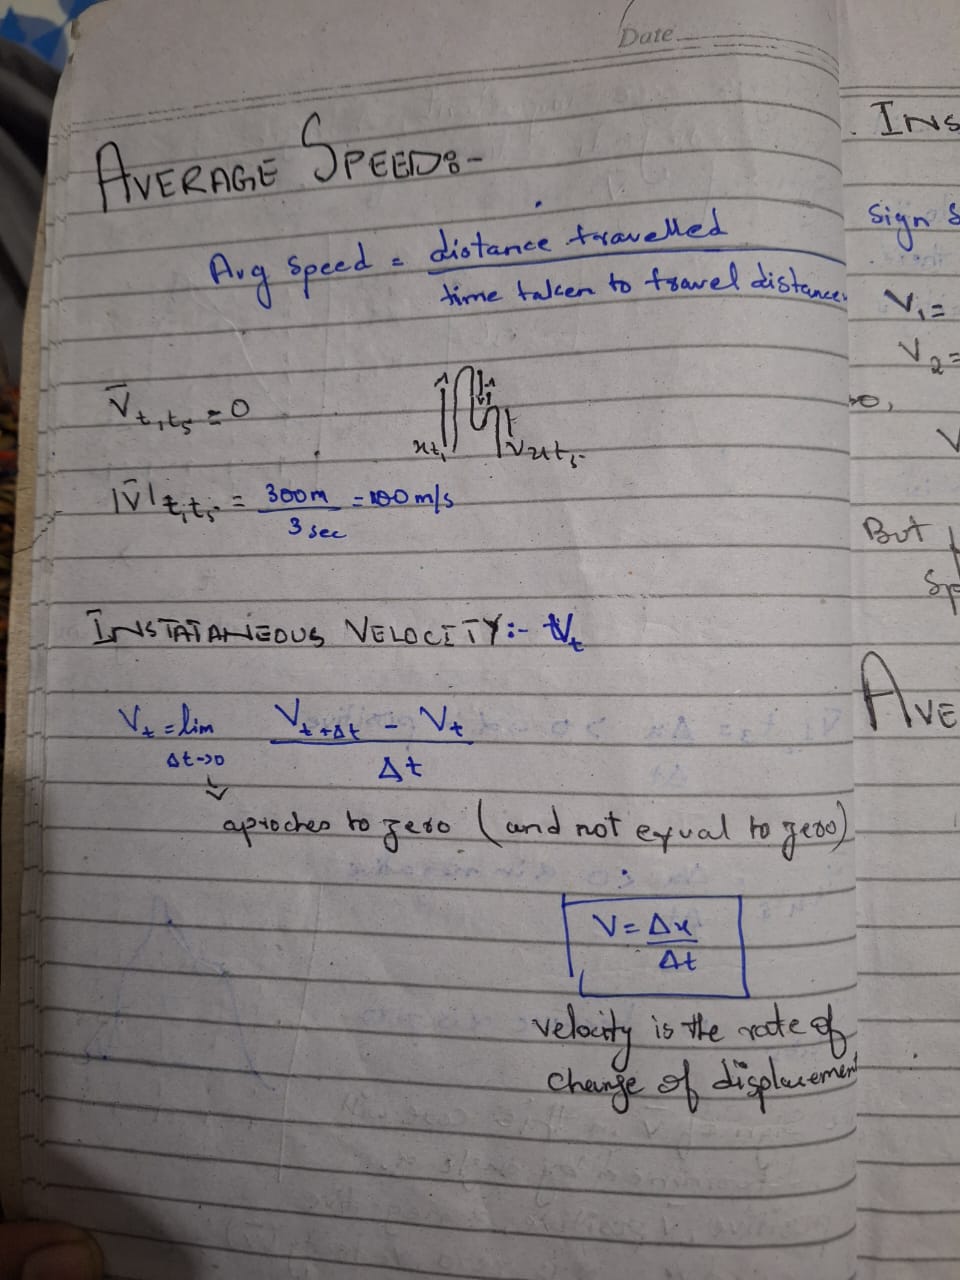 Date
AVERAGE SPEED:-
Avg speed = distance travelled / time taken to travel distance
V̄t₁t₅ = 0
xt₁
xt₅
|V̄|t₁t₅ = 300m / 3 sec = 100 m/s
INSTATANEOUS VELOCITY:- Vt
Vt = lim Δt->0 Vt+Δt - Vt / Δt
aproches to zero (and not equal to zero)
V = Δx / Δt
velocity is the rate of
change of displacement
INS
Sign S
V₁=
V₂=
But
Sp
AVE